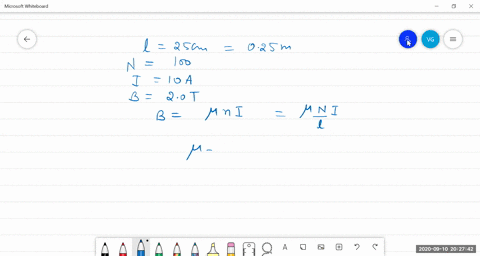 Microsoft Whiteboard
VG
l = 25cm = 0.25m
N = 100
I = 10A
B = 2.0T
B = μnI = μ N/l I
μ =
A
2020-09-10 20:27:42